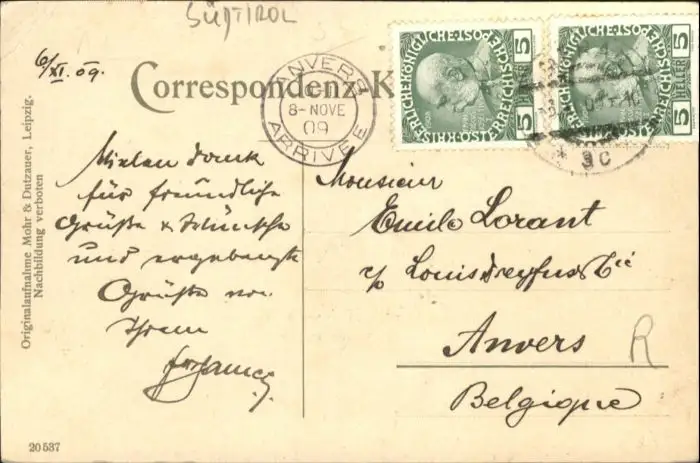 SÜDTIROL
6/XI. 09.
Correspondenz-K
ANVERS
8-NOVE
09
ARRIVÉE
KAISERLICHE KÖNIGLICHE ÖSTERREICHISCHE POST
5 HELLER 5
5 HELLER 5
3C
Vielen Dank
für freundliche
Grüße & Wünsche
und ergebenste
Grüße von
Ihrem
Monsieur
Emile Lorant
c/o Louis Dreyfus & Cie
Anvers
R
Belgique
Originalaufnahme Mohr & Dutzauer, Leipzig.
Nachbildung verboten
20537